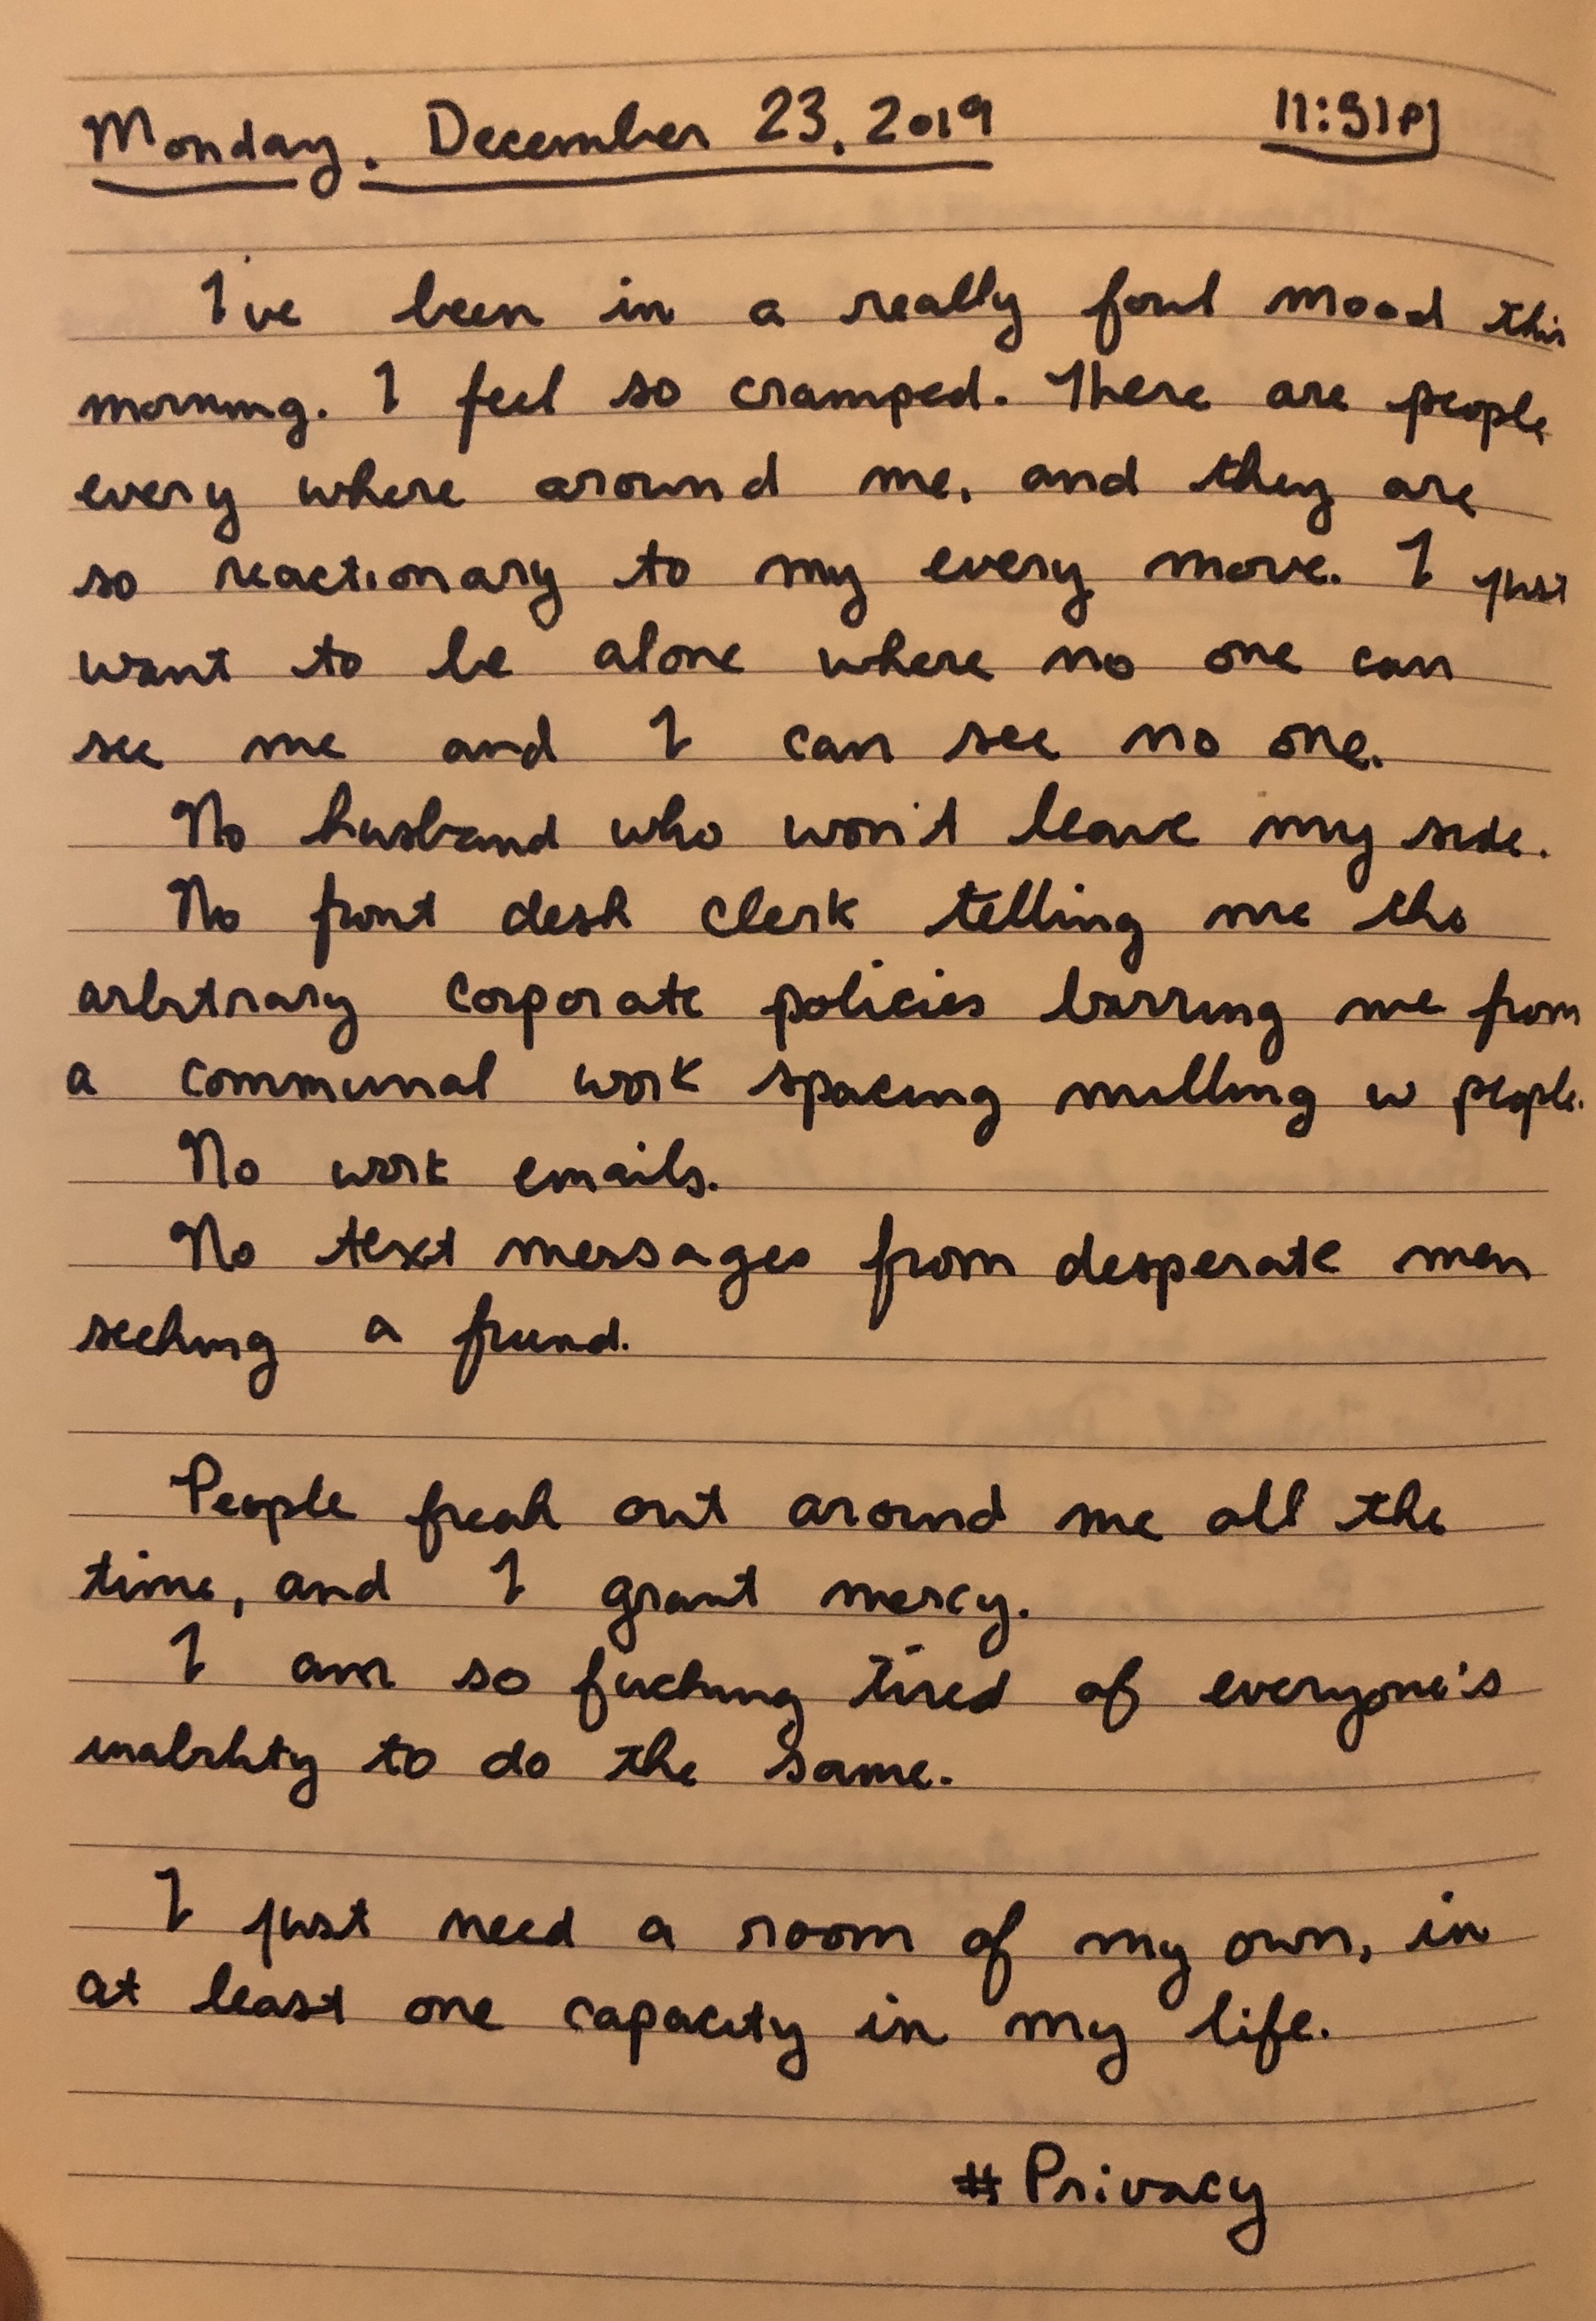 Monday, December 23, 2019 11:51P
I've been in a really foul mood this
morning. I feel so cramped. There are people
every where around me, and they are
so reactionary to my every move. I just
want to be alone where no one can
see me and I can see no one.
No husband who won't leave my side.
No front desk clerk telling me the
arbitrary corporate policies barring me from
a communal work spacing milling w people.
No work emails.
No text messages from desperate men
seeking a friend.
People freak out around me all the
time, and I grant mercy.
I am so fucking tired of everyone's
inability to do the same.
I just need a room of my own, in
at least one capacity in my life.
#Privacy